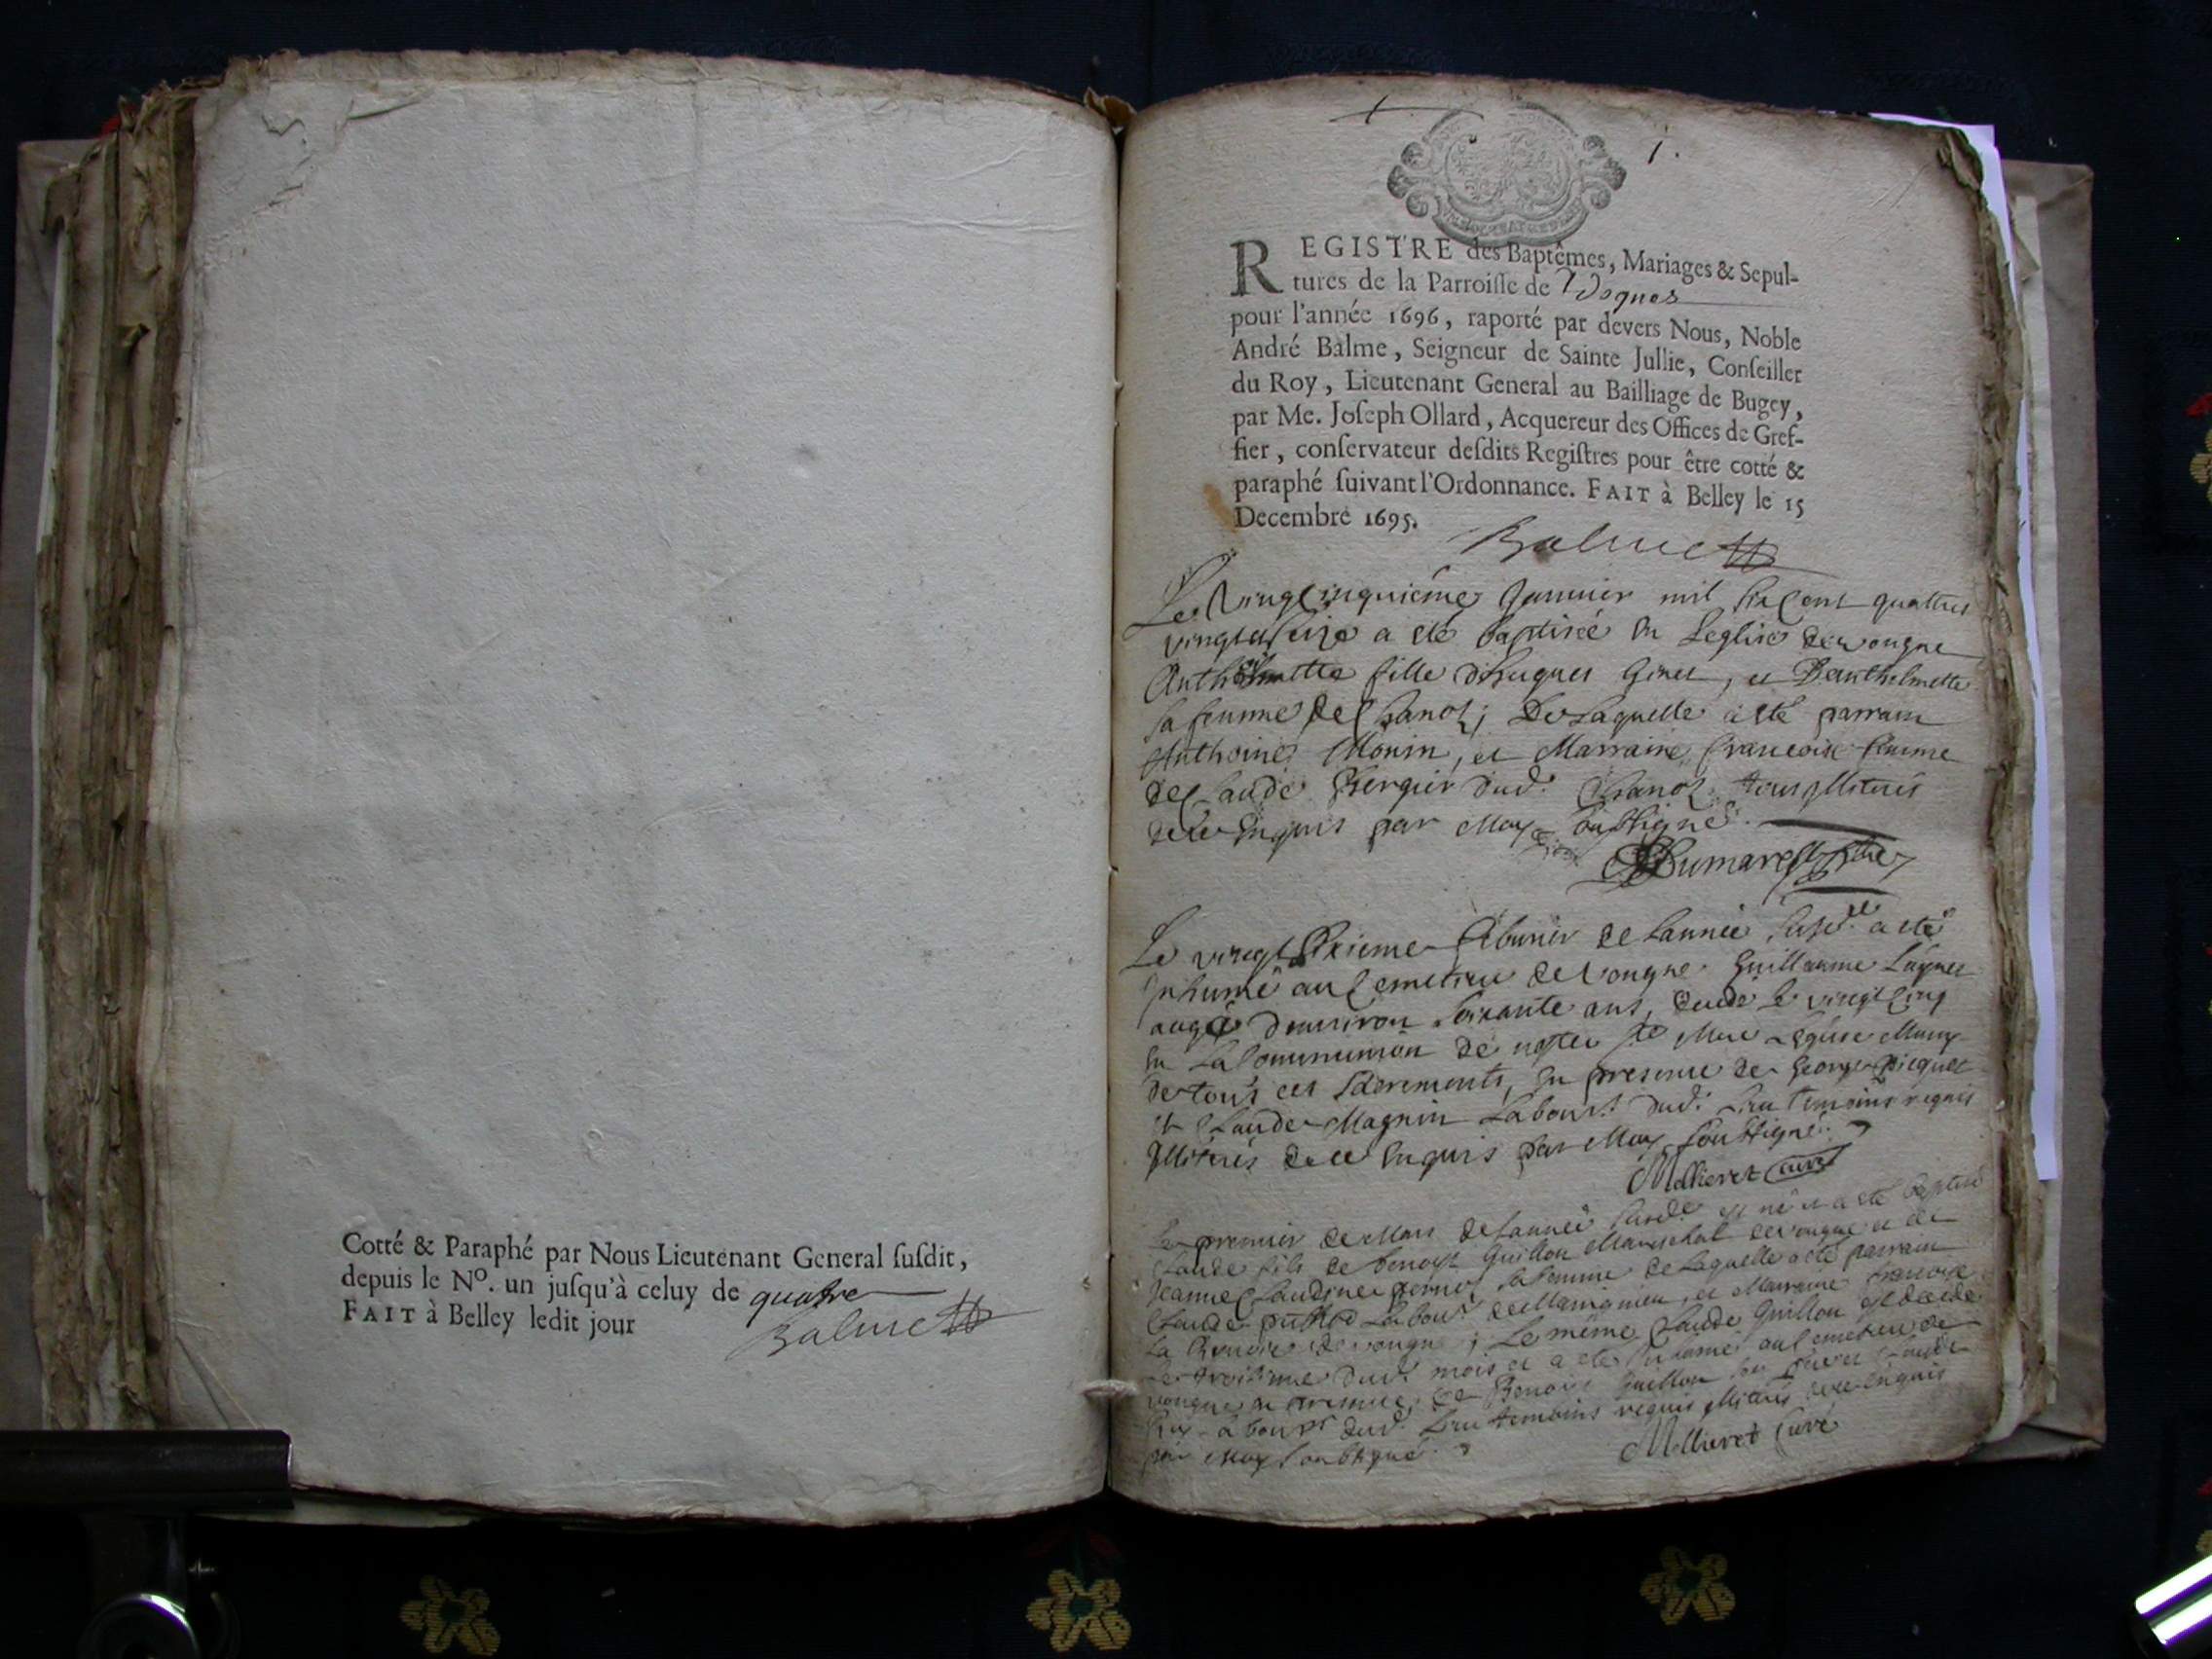 Cotté & Paraphé par Nous Lieutenant General ſuſdit,
depuis le Nº. un juſqu'à celuy de quatre
FAIT à Belley ledit jour
Balme
1.
REGISTRE des Baptêmes, Mariages & Sepul-
tures de la Parroiſſe de
pour l'année 1696, raporté par devers Nous, Noble
André Balme, Seigneur de Sainte Jullie, Conſeiller
du Roy, Lieutenant General au Bailliage de Bugey,
par Me. Joſeph Ollard, Acquereur des Offices de Gref-
fier, conſervateur deſdits Regiſtres pour être cotté &
paraphé ſuivant l'Ordonnance. FAIT à Belley le 15
Decembre 1695.
Balme
Le vingtcinquiéme Janvier mil six cent quattre
vingt et seize a eté baptisée en Leglise de vongne
fille d'hugues Ginet, et Barthelmette
sa femme de Chanoz; De Laquelle a eté parrain
Anthoine Monin, et Marraine francoise femme
de Claude Bergier dud. Chanoz tous illiterés
de ce enquis par Moy soubsigné.
Dumarest
Le vingt sixieme febvrier de Lannée susd. a eté
inhumé au Cemetiere de vongne Guillaume
augé d'environ soixante ans, decedé le vingt cinq
en La Communion de nostre ste Mere Leglise Muny
de tous ces sacrements, en presence de George picquet
et Claude Magnin Labour. dud. Lieu temoins requis
illiterés de ce enquis par Moy soubsigné.
Mollieret Curé
Le premier de Mars de Lannée susd. est né et a eté baptisé
Claude fils de benoist Guillon Mareschal de vongne et de
Jeanne Claudine sa femme de Laquelle a eté parrain
Claude Labour. de et Marraine francoise
La de vongne; Le même Claude Guillon est decedé
Le troisieme dud. mois et a eté inhumé au Cemetiere de
vongne en presence de Benoist Guillon son pere et Claude
Labour. dud. Lieu temoins requis illiterés de ce enquis
par Moy soubsigné.
Mollieret Curé